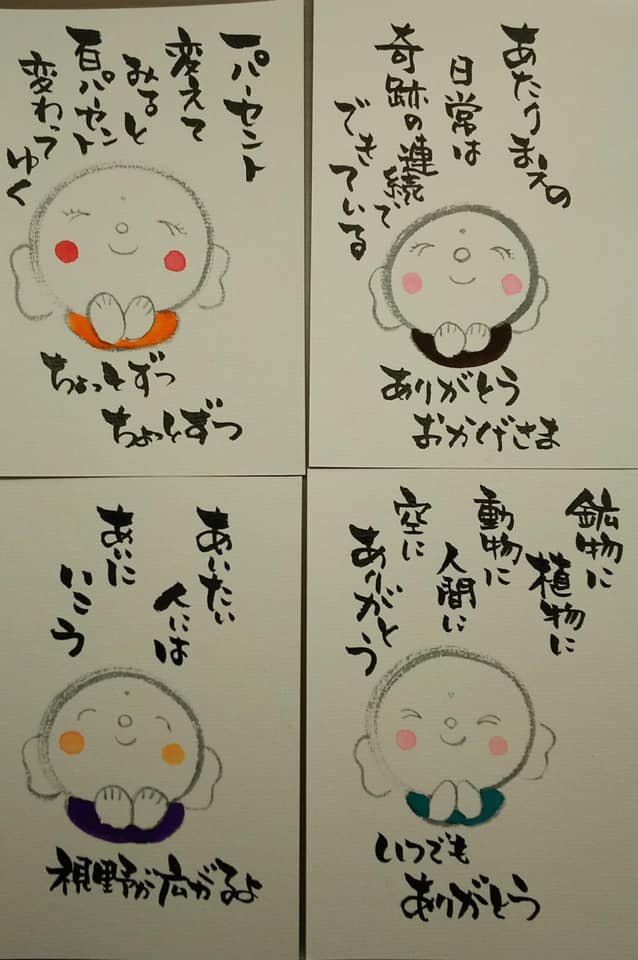 一パーセント
変えて
みると
百パーセント
変わって
ゆく
ちょっとずつ
ちょっとずつ
あたりまえの
日常は
奇跡の連続で
できている
ありがとう
おかげさま
あいたい
人には
あいに
いこう
視野が広がるよ
鉱物に
植物に
動物に
人間に
空に
ありがとう
いつでも
ありがとう